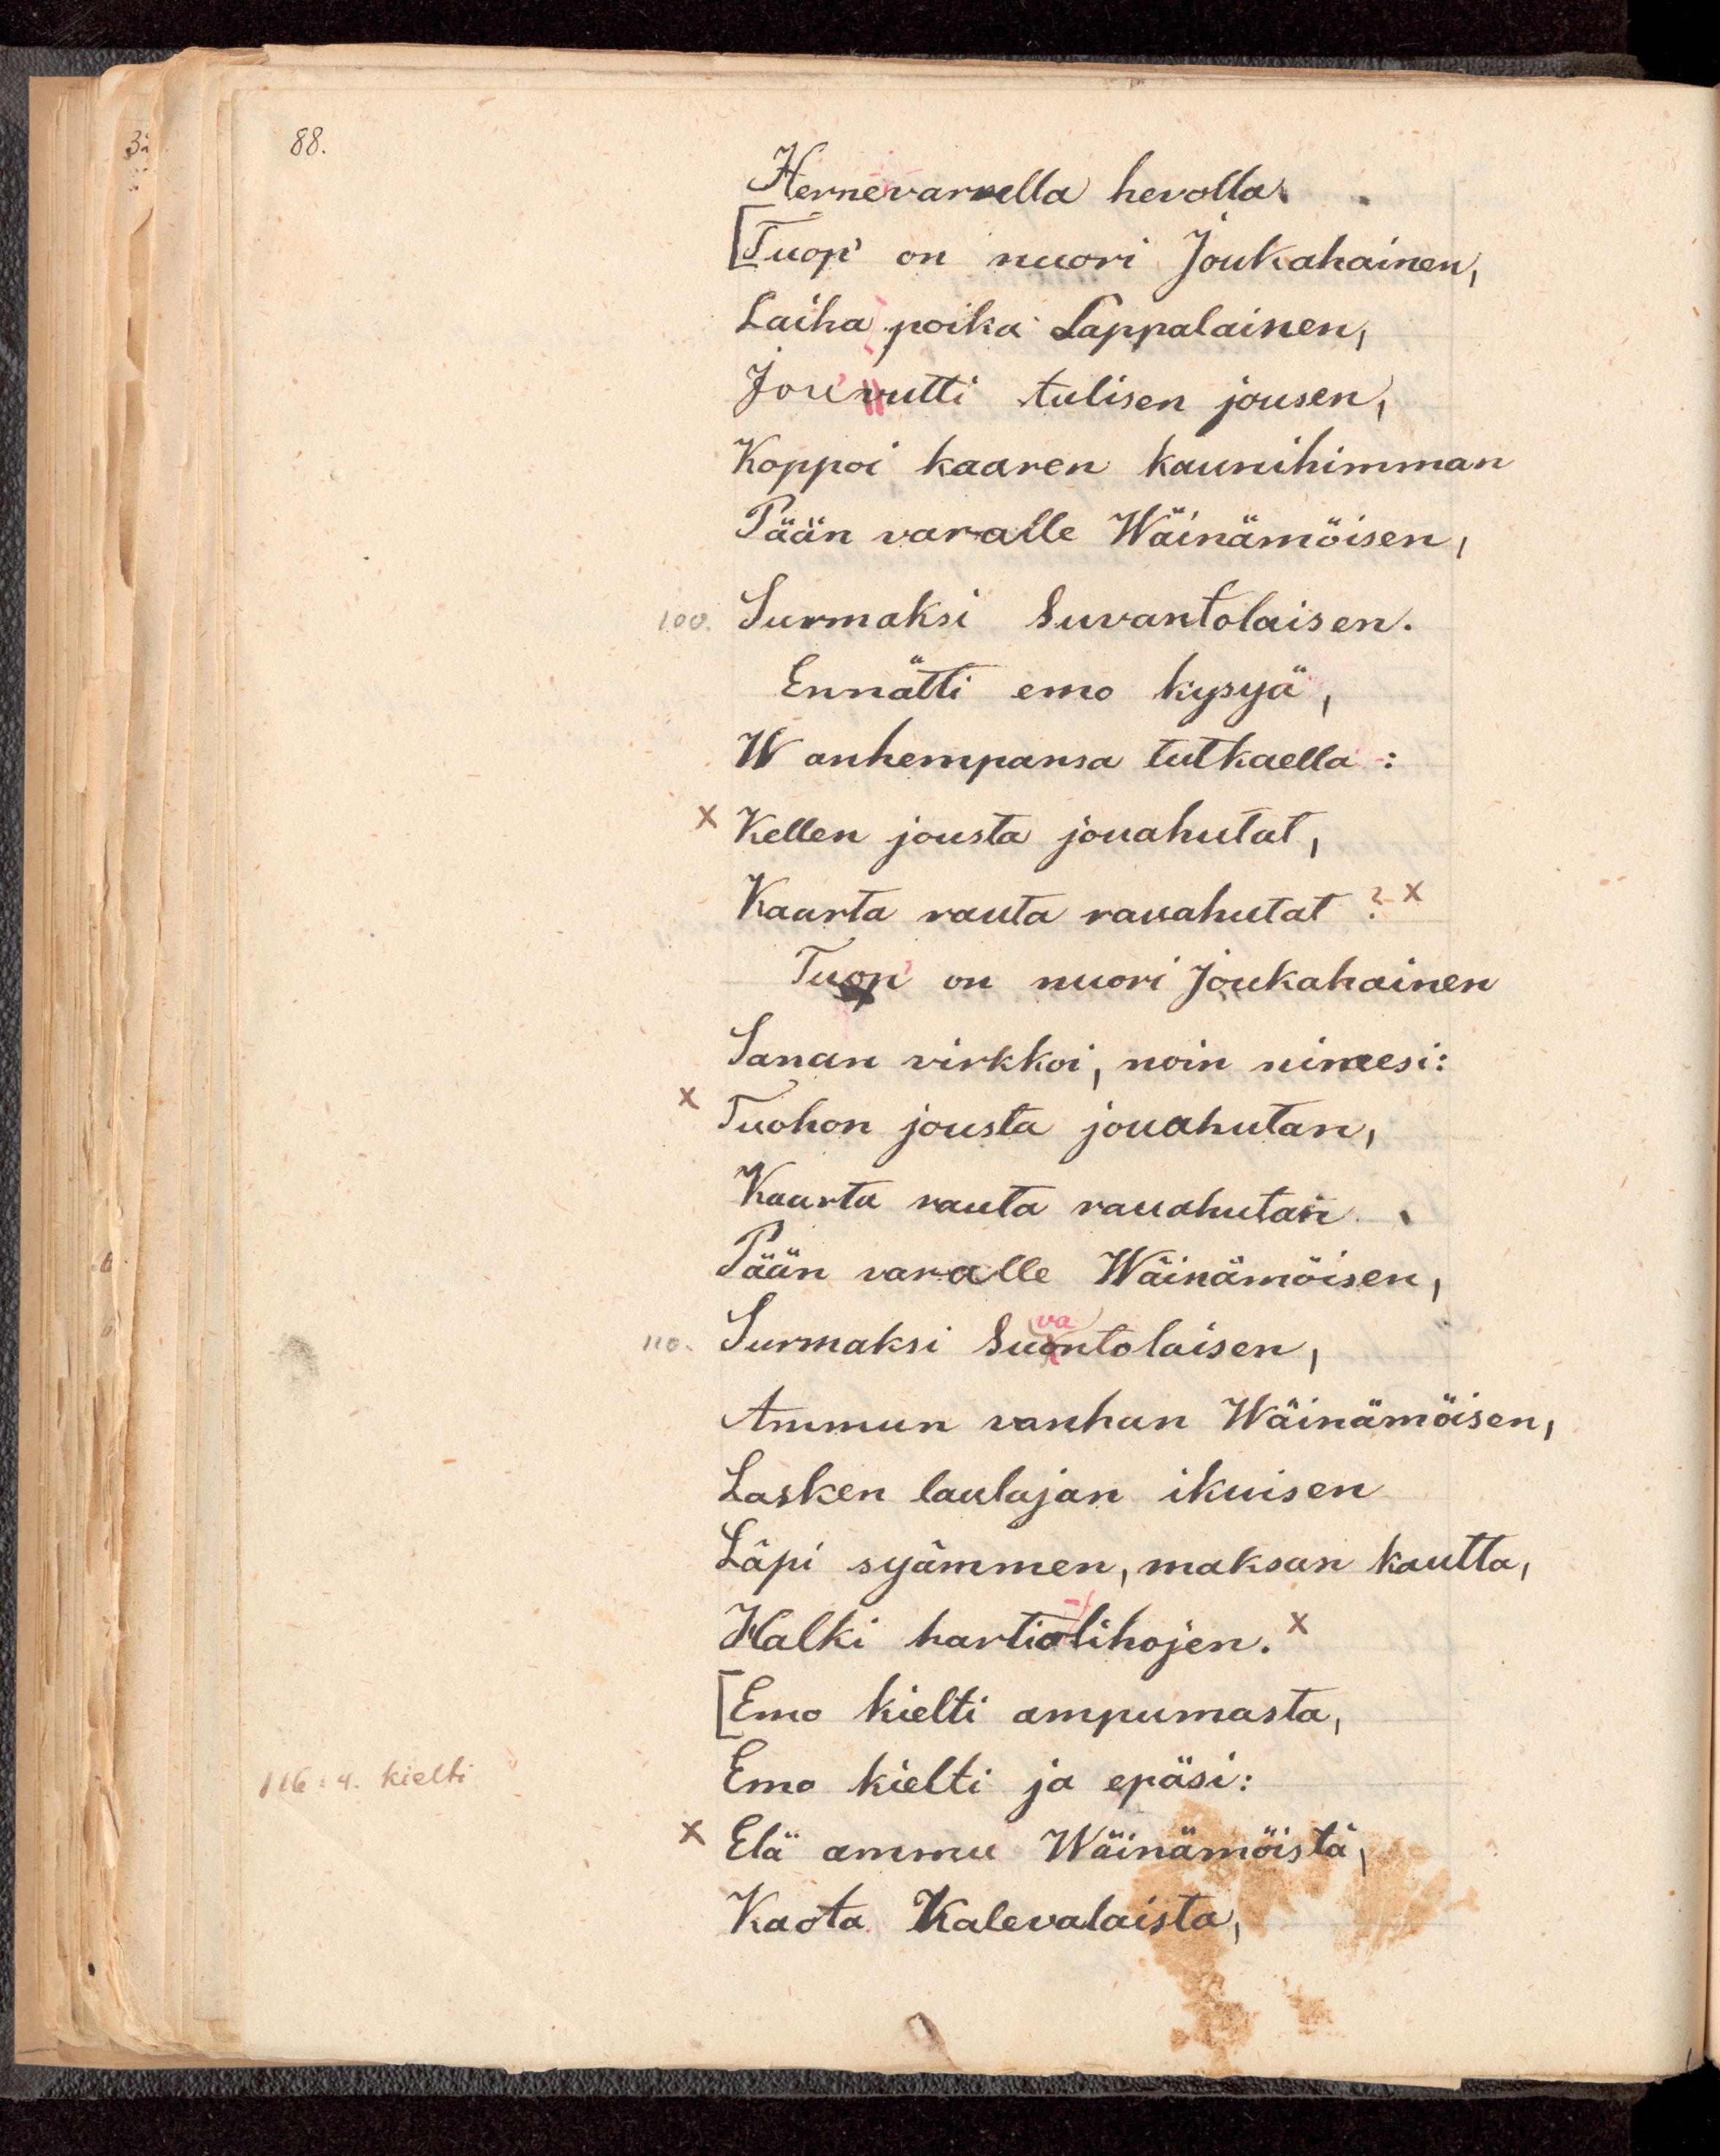 88.
Hernevarrella hevolla.
[Tuop' on nuori Joukahainen,
Laiha poika Lappalainen,
Jou'utti tulisen jousen,
Koppoi kaaren kaunihimman
Pään varalle Wäinämöisen,
100. Surmaksi Suvantolaisen.
Ennätti emo kysyä,
Wanhempansa tutkaella:
x Kellen jousta jouahutat,
Kaarta rauta rauahutat? x
Tuop' on nuori Joukahainen
Sanan virkkoi, noin nimesi:
x Tuohon jousta jouahutan,
Kaarta rauta rauahutan
Pään varalle Wäinämöisen,
va
110. Surmaksi Suontolaisen,
Ammun vanhan Wäinämöisen,
Lasken laulajan ikuisen
Läpi syämmen, maksan kautta,
Halki hartiolihojen. x
[Emo kielti ampumasta,
116: 4. kielti Emo kielti ja epäsi:
x Elä ammu Wäinämöistä,
Kaota Kalevalaista,